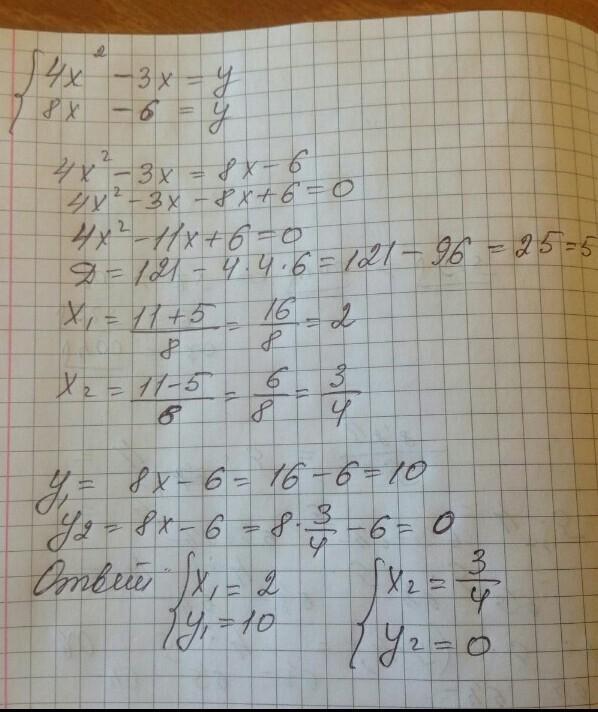 { 4x² - 3x = y
8x - 6 = y
4x² - 3x = 8x - 6
4x² - 3x - 8x + 6 = 0
4x² - 11x + 6 = 0
Д = 121 - 4·4·6 = 121 - 96 = 25 = 5
x₁ = (11+5)/8 = 16/8 = 2
x₂ = (11-5)/6 = 6/8 = 3/4
y₁ = 8x - 6 = 16 - 6 = 10
y₂ = 8x - 6 = 8·3/4 - 6 = 0
Ответ: { x₁ = 2 { x₂ = 3/4
y₁ = 10 y₂ = 0